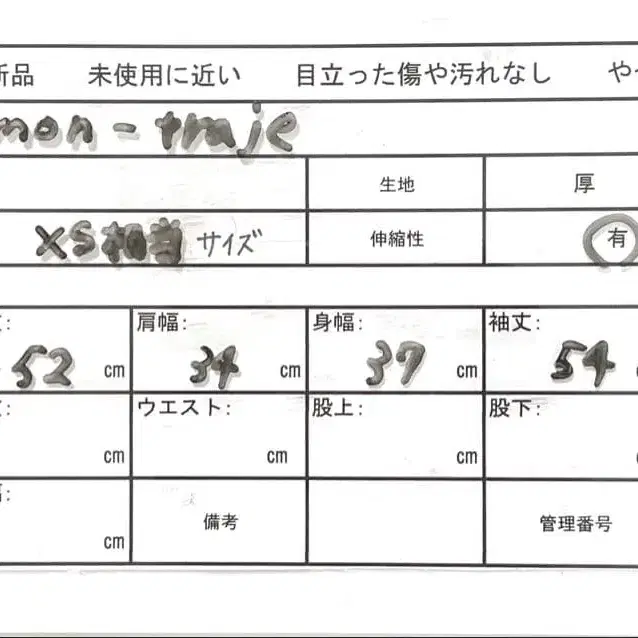 新品 未使用に近い 目立った傷や汚れなし や
mon-traje
生地 厚
XS相当サイズ 伸縮性 有
丈: 肩幅: 身幅: 袖丈:
52 cm 34 cm 37 cm 54
ウエスト: 股上: 股下:
cm cm cm
幅:
cm 備考 管理番号